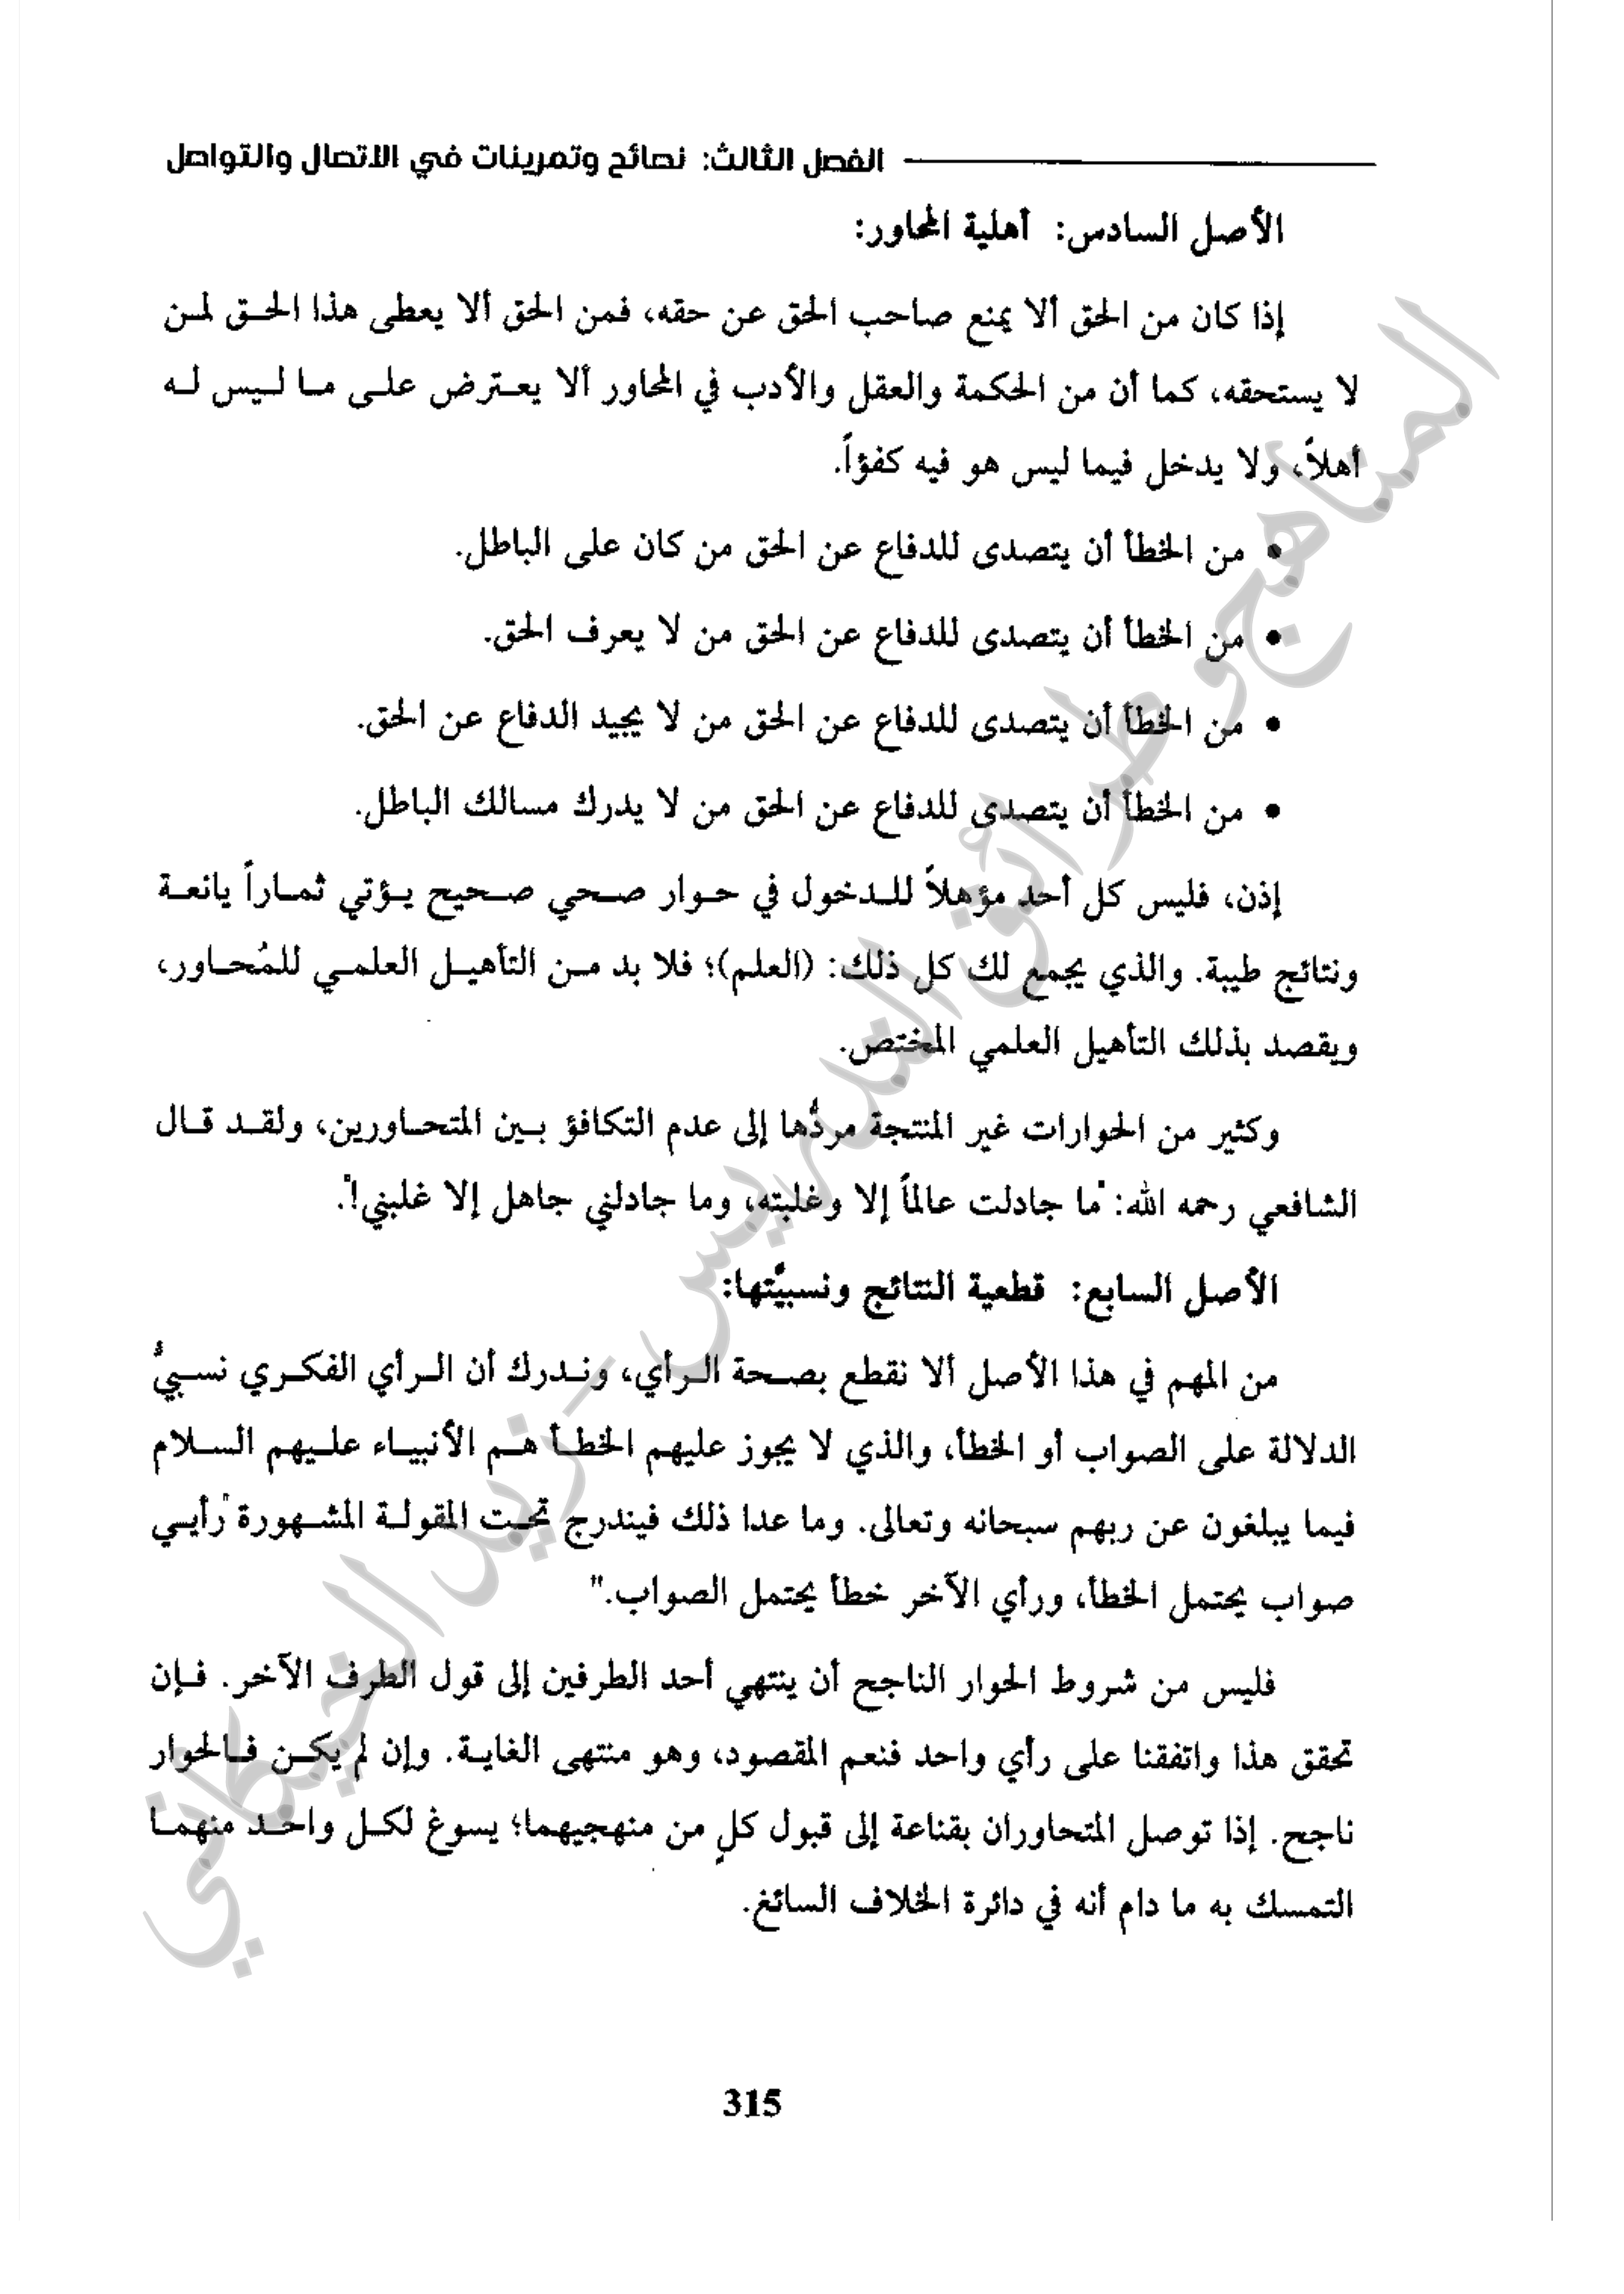 الفصل الثالث: نصائح وتمرينات في الاتصال والتواصل
الأصل السادس: أهلية المحاور:
إذا كان من الحق ألا يمنع صاحب الحق عن حقه، فمن الحق ألا يعطى هذا الحق لمن
لا يستحقه، كما أن من الحكمة والعقل والأدب في المحاور ألا يعترض على ما ليس له
أهلاً، ولا يدخل فيما ليس هو فيه كفؤاً.
• من الخطأ أن يتصدى للدفاع عن الحق من كان على الباطل.
• من الخطأ أن يتصدى للدفاع عن الحق من لا يعرف الحق.
• من الخطأ أن يتصدى للدفاع عن الحق من لا يجيد الدفاع عن الحق.
• من الخطأ أن يتصدى للدفاع عن الحق من لا يدرك مسالك الباطل.
إذن، فليس كل أحد مؤهلاً للدخول في حوار صحي صحيح يؤتي ثماراً يانعة
ونتائج طيبة. والذي يجمع لك كل ذلك: (العلم)؛ فلا بد من التأهيل العلمي للمُحاور،
ويقصد بذلك التأهيل العلمي المختص.
وكثير من الحوارات غير المنتجة مردُّها إلى عدم التكافؤ بين المتحاورين، ولقد قال
الشافعي رحمه الله: "ما جادلت عالماً إلا وغلبته، وما جادلني جاهل إلا غلبني!".
الأصل السابع: قطعية النتائج ونسبيَّتها:
من المهم في هذا الأصل ألا نقطع بصحة الرأي، وندرك أن الرأي الفكري نسبيُّ
الدلالة على الصواب أو الخطأ، والذي لا يجوز عليهم الخطأ هم الأنبياء عليهم السلام
فيما يبلغون عن ربهم سبحانه وتعالى. وما عدا ذلك فيندرج تحت المقولة المشهورة "رأيي
صواب يحتمل الخطأ، ورأي الآخر خطأ يحتمل الصواب."
فليس من شروط الحوار الناجح أن ينتهي أحد الطرفين إلى قول الطرف الآخر. فإن
تحقق هذا واتفقنا على رأي واحد فنعم المقصود، وهو منتهى الغاية. وإن لم يكن فالحوار
ناجح. إذا توصل المتحاوران بقناعة إلى قبول كلٍ من منهجيهما؛ يسوغ لكل واحد منهما
التمسك به ما دام أنه في دائرة الخلاف السائغ.
315
المناهج و طرائق التدريس - زيد الخيكاني